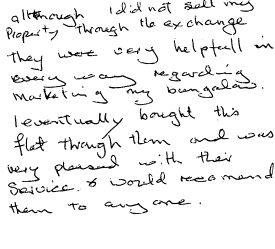 although I did not sell my
Property through the exchange
they were very helpfull in
every way regarding
marketing my bungalow.
I eventually bought this
flat through them and was
very pleased with their
Service. & would recomend
them to any one.